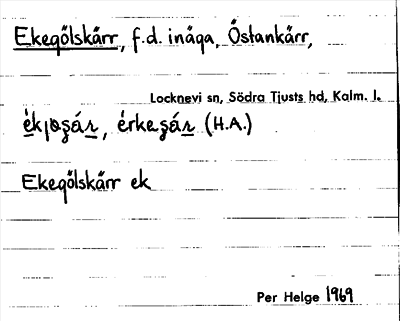 Ekegölskärr, f.d. inäga, Östankärr,
Locknevi sn, Södra Tjusts hd, Kalm. l.
(H.A.)
Ekegölskärr ek
Per Helge 1969